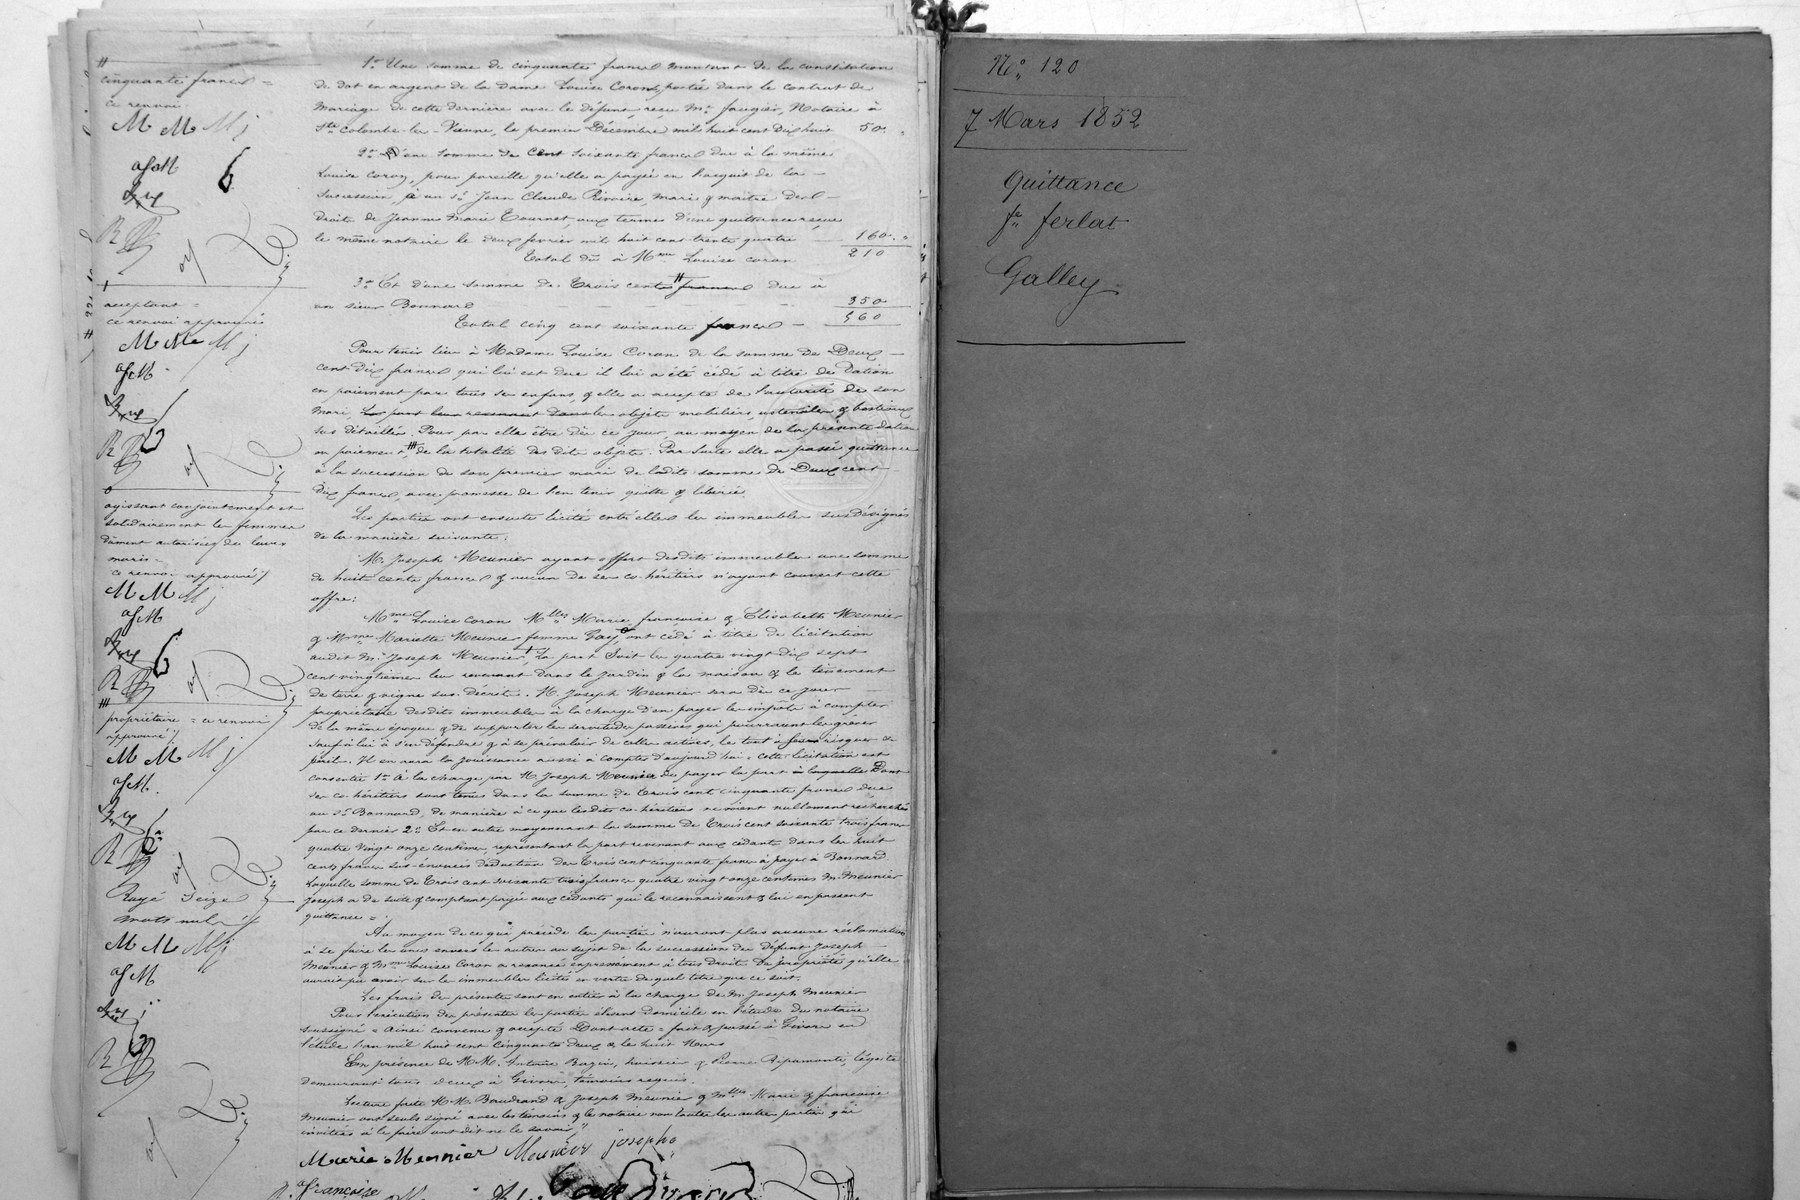 #
cinquante francs =
ce renvoi
M M Mj
afM
R
acceptant =
ce renvoi approuvé
M Me Mj
afM
R
agissant conjointement et
solidairement les femmes
dûment autorisées de leurs
maris =
ce renvoi approuvé
M M Mj
afM
R
propriétaire = ce renvoi
approuvé
M M Mj
afM.
R
Rayé seize
mots nuls
M M Mj
afM
R
1° Une somme de cinquante francs montant de la constitution
de dot en argent de la dame Louise Coron, portée dans le contrat de
Mariage de cette dernière avec le défunt, reçu Me faugier, Notaire à
Ste Colombe-les-Vienne, le premier Décembre mil huit cent dix huit 50 "
2° D'une somme de Cent soixante francs due à la même
Louise Coron, pour pareille qu'elle a payée en l'acquit de la
succession, à un Sr Jean Claude Rivoire, mari & maître des
Droits de Jeanne Marie Tournet, aux termes d'une quittance reçue
le même notaire le deux février mil huit cent trente quatre 160 "
Total dû à Mme Louise Coron 210
3° Et d'une somme de Trois cents # francs due à
un sieur Bonnard 350
Total cinq cent soixante francs 560
Pour tenir lieu à Madame Louise Coron de la somme de Deux
cent dix francs qui lui est due il lui a été cédé à titre de Dation
en paiement par tous ses enfans, & elle a accepté de l'autorité de son
mari, La part leur revenant dans les objets mobiliers, ustensiles & bestiaux
sus détaillés. Pour par elle être dès ce jour, au moyen de la présente dation
en paiement, # de la totalité des dits objets. Par suite elle a passé quittance
à la succession de son premier mari de ladite somme de Deux cent
dix francs, avec promesse de l'en tenir quitte & libérée.
Les parties ont ensuite licité entr'elles les immeubles sus désignés
de la manière suivante.
M. Joseph Meunier ayant offert desdits immeubles une somme
de huit cents francs & aucun de ses co-héritiers n'ayant couvert cette
offre:
Mme Louise Coron Mlles Marie, françoise & Elisabeth Meunier
& Mme Mariette Meunier femme Gay, ont cédé à titre de licitation
audit M. Joseph Meunier, La part Soit les quatre vingt dix sept
cent vingtièmes leur revenant dans le jardin & la maison & le tènement
de terre & vigne sus-Décrits. M. Joseph Meunier sera dès ce jour
propriétaire desdits immeubles à la charge d'en payer les impôts à compter
de la même époque & de supporter les servitudes passives qui pourraient les grever
sauf à lui à s'en défendre & à se prévaloir de celles actives, le tout à ses risques et
péril. Il en aura la jouissance aussi à compter d'aujourd'hui. Cette licitation est
consentie 1° à la charge par M. Joseph Meunier de payer la part à laquelle Dont
ses co-héritiers sont tenus dans la somme de Trois cent cinquante francs due
au Sr Bonnard, de manière à ce que lesdits co-héritiers ne soient nullement recherchés
par ce dernier 2° Et en outre moyennant la somme de Trois cent soixante trois francs
quatre vingt onze centimes représentant la part revenant aux cédants dans les huit
cents francs sus-énoncés déduction des Trois cent cinquante francs à payer à Bonnard.
Laquelle somme de Trois cent soixante trois francs quatre vingt onze centimes M. Meunier
Joseph a de suite & comptant payée aux cédants qui le reconnaissent & lui en passent
quittance =
Au moyen de ce qui précède les parties n'auront plus aucune réclamation
à se faire les unes envers les autres au sujet de la succession du défunt Joseph
Meunier & Mme Louise Coron a renoncé expressément à tous Droits de propriété qu'elle
aurait pu avoir sur les immeubles licités en vertu de quel titre que ce soit.
Les frais des présentes sont en entier à la charge de M. Joseph Meunier
Pour l'exécution des présentes les parties élisent domicile en l'étude du notaire
soussigné = Ainsi convenu & accepté Dont acte = fait & passé à Givors en
l'étude l'an mil huit cent cinquante deux & le huit Mars
En présence de MM. Antoine Bazin, huissier & Pierre Ripamonti, légiste
demeurant tous deux à Givors, témoins requis.
Lecture faite MM. Baudrand & Joseph Meunier & Mlles Marie & françoise
Meunier ont seuls signé avec les témoins & le notaire non toutes les autres parties qui
invitées à le faire ont dit ne le savoir
Marie Meunier Meunier josephe
françoise
No. 120
7 Mars 1852
Quittance
fe. ferlat
Galley